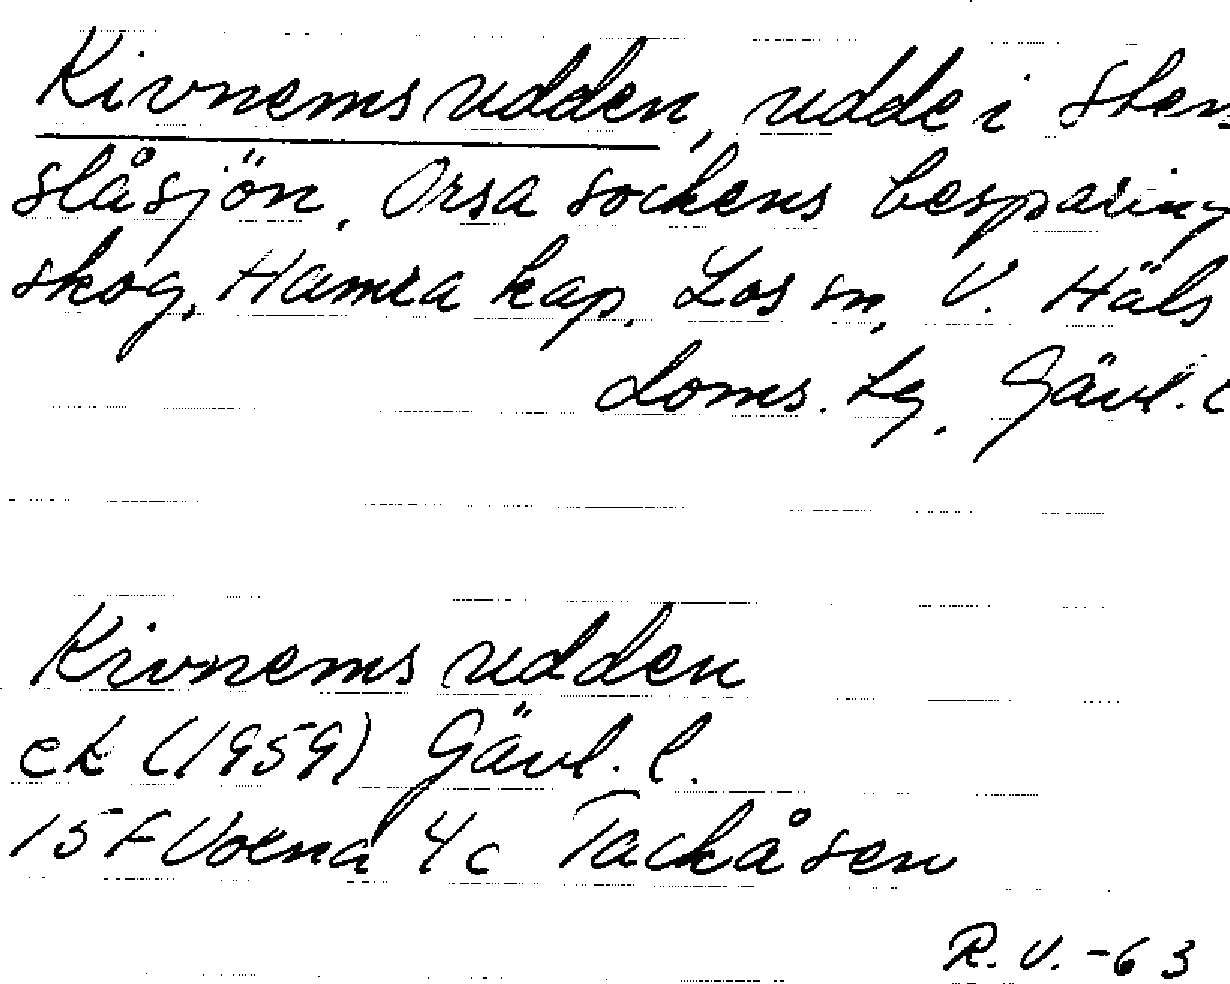 Kivnemsudden, udde i Sten
slåsjön, Orsa sockens besparing
skog, Hamra kap. Los sn, V. Häls
doms. tg. Gävl. l
Kivnemsudden
ek (1959) Gävl. l.
15 F Voxna 4c Tackåsen
R.V. -63